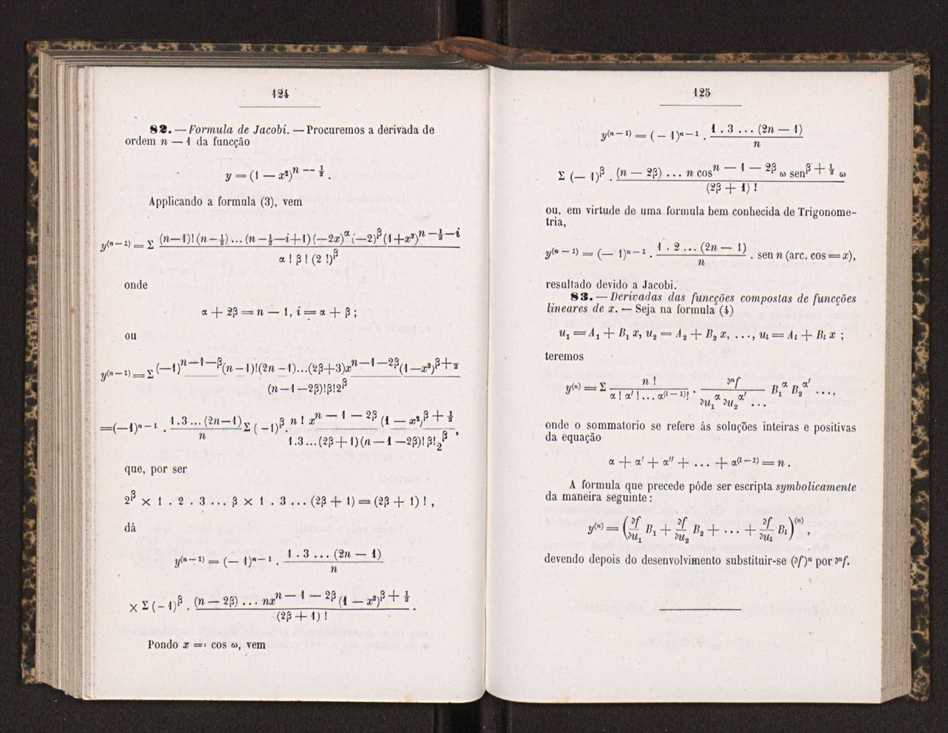 124
82. — Formula de Jacobi. — Procuremos a derivada de
ordem n — 1 da funcção
y = (1 — x²)^{n — ½}.
Applicando a formula (3), vem
y^{(n—1)} = Σ (n—1)! (n—½) ... (n—½—i+1) (—2x)^α (—2)^β (1+x²)^{n—½—i} / α ! β ! (2 !)^β
onde
α + 2β = n — 1, i = α + β ;
ou
y^{(n—1)} = Σ (—1)^{n—1—β} (n—1)! (2n—1)...(2β+3) x^{n—1—2β} (1—x²)^{β+½} / (n—1—2β)! β! 2^β
= (—1)^{n—1} . 1.3 ... (2n—1) / n Σ (—1)^β . n ! x^{n—1—2β} (1 — x²)^{β+½} / 1.3 ... (2β+1) (n—1—2β)! β! 2^β ,
que, por ser
2^β × 1 . 2 . 3 ... β × 1 . 3 ... (2β + 1) = (2β + 1) ! ,
dá
y^{(n—1)} = (— 1)^{n—1} . 1 . 3 ... (2n — 1) / n
× Σ (—1)^β . (n — 2β) ... n x^{n — 1 — 2β} (1 — x²)^{β + ½} / (2β + 1) ! .
Pondo x = cos ω, vem
125
y^{(n—1)} = (— 1)^{n—1} . 1 . 3 ... (2n — 1) / n
Σ (— 1)^β . (n — 2β) ... n cos^{n — 1 — 2β} ω sen^{β + ½} ω / (2β + 1) !
ou, em virtude de uma formula bem conhecida de Trigonome-
tria,
y^{(n — 1)} = (— 1)^{n—1} . 1 . 2 ... (2n — 1) / n . sen n (arc. cos = x),
resultado devido a Jacobi.
83. — Derivadas das funcções compostas de funcções
lineares de x. — Seja na formula (4)
u₁ = A₁ + B₁ x, u₂ = A₂ + B₂ x, ..., u_l = A_l + B_l x ;
teremos
y^{(n)} = Σ n ! / α ! α′ ! ... α^{(l—1)}! . ∂ⁿf / ∂u₁^α ∂u₂^{α′} ... B₁^α B₂^{α′} ...,
onde o sommatorio se refere ás soluções inteiras e positivas
da equação
α + α′ + α″ + ... + α^{(l—1)} = n .
A formula que precede póde ser escripta symbolicamente
da maneira seguinte :
y^{(n)} = (∂f/∂u₁ B₁ + ∂f/∂u₂ B₂ + ... + ∂f/∂u_l B_l)^{(n)} ,
devendo depois do desenvolvimento substituir-se (∂f)ⁿ por ∂ⁿf.